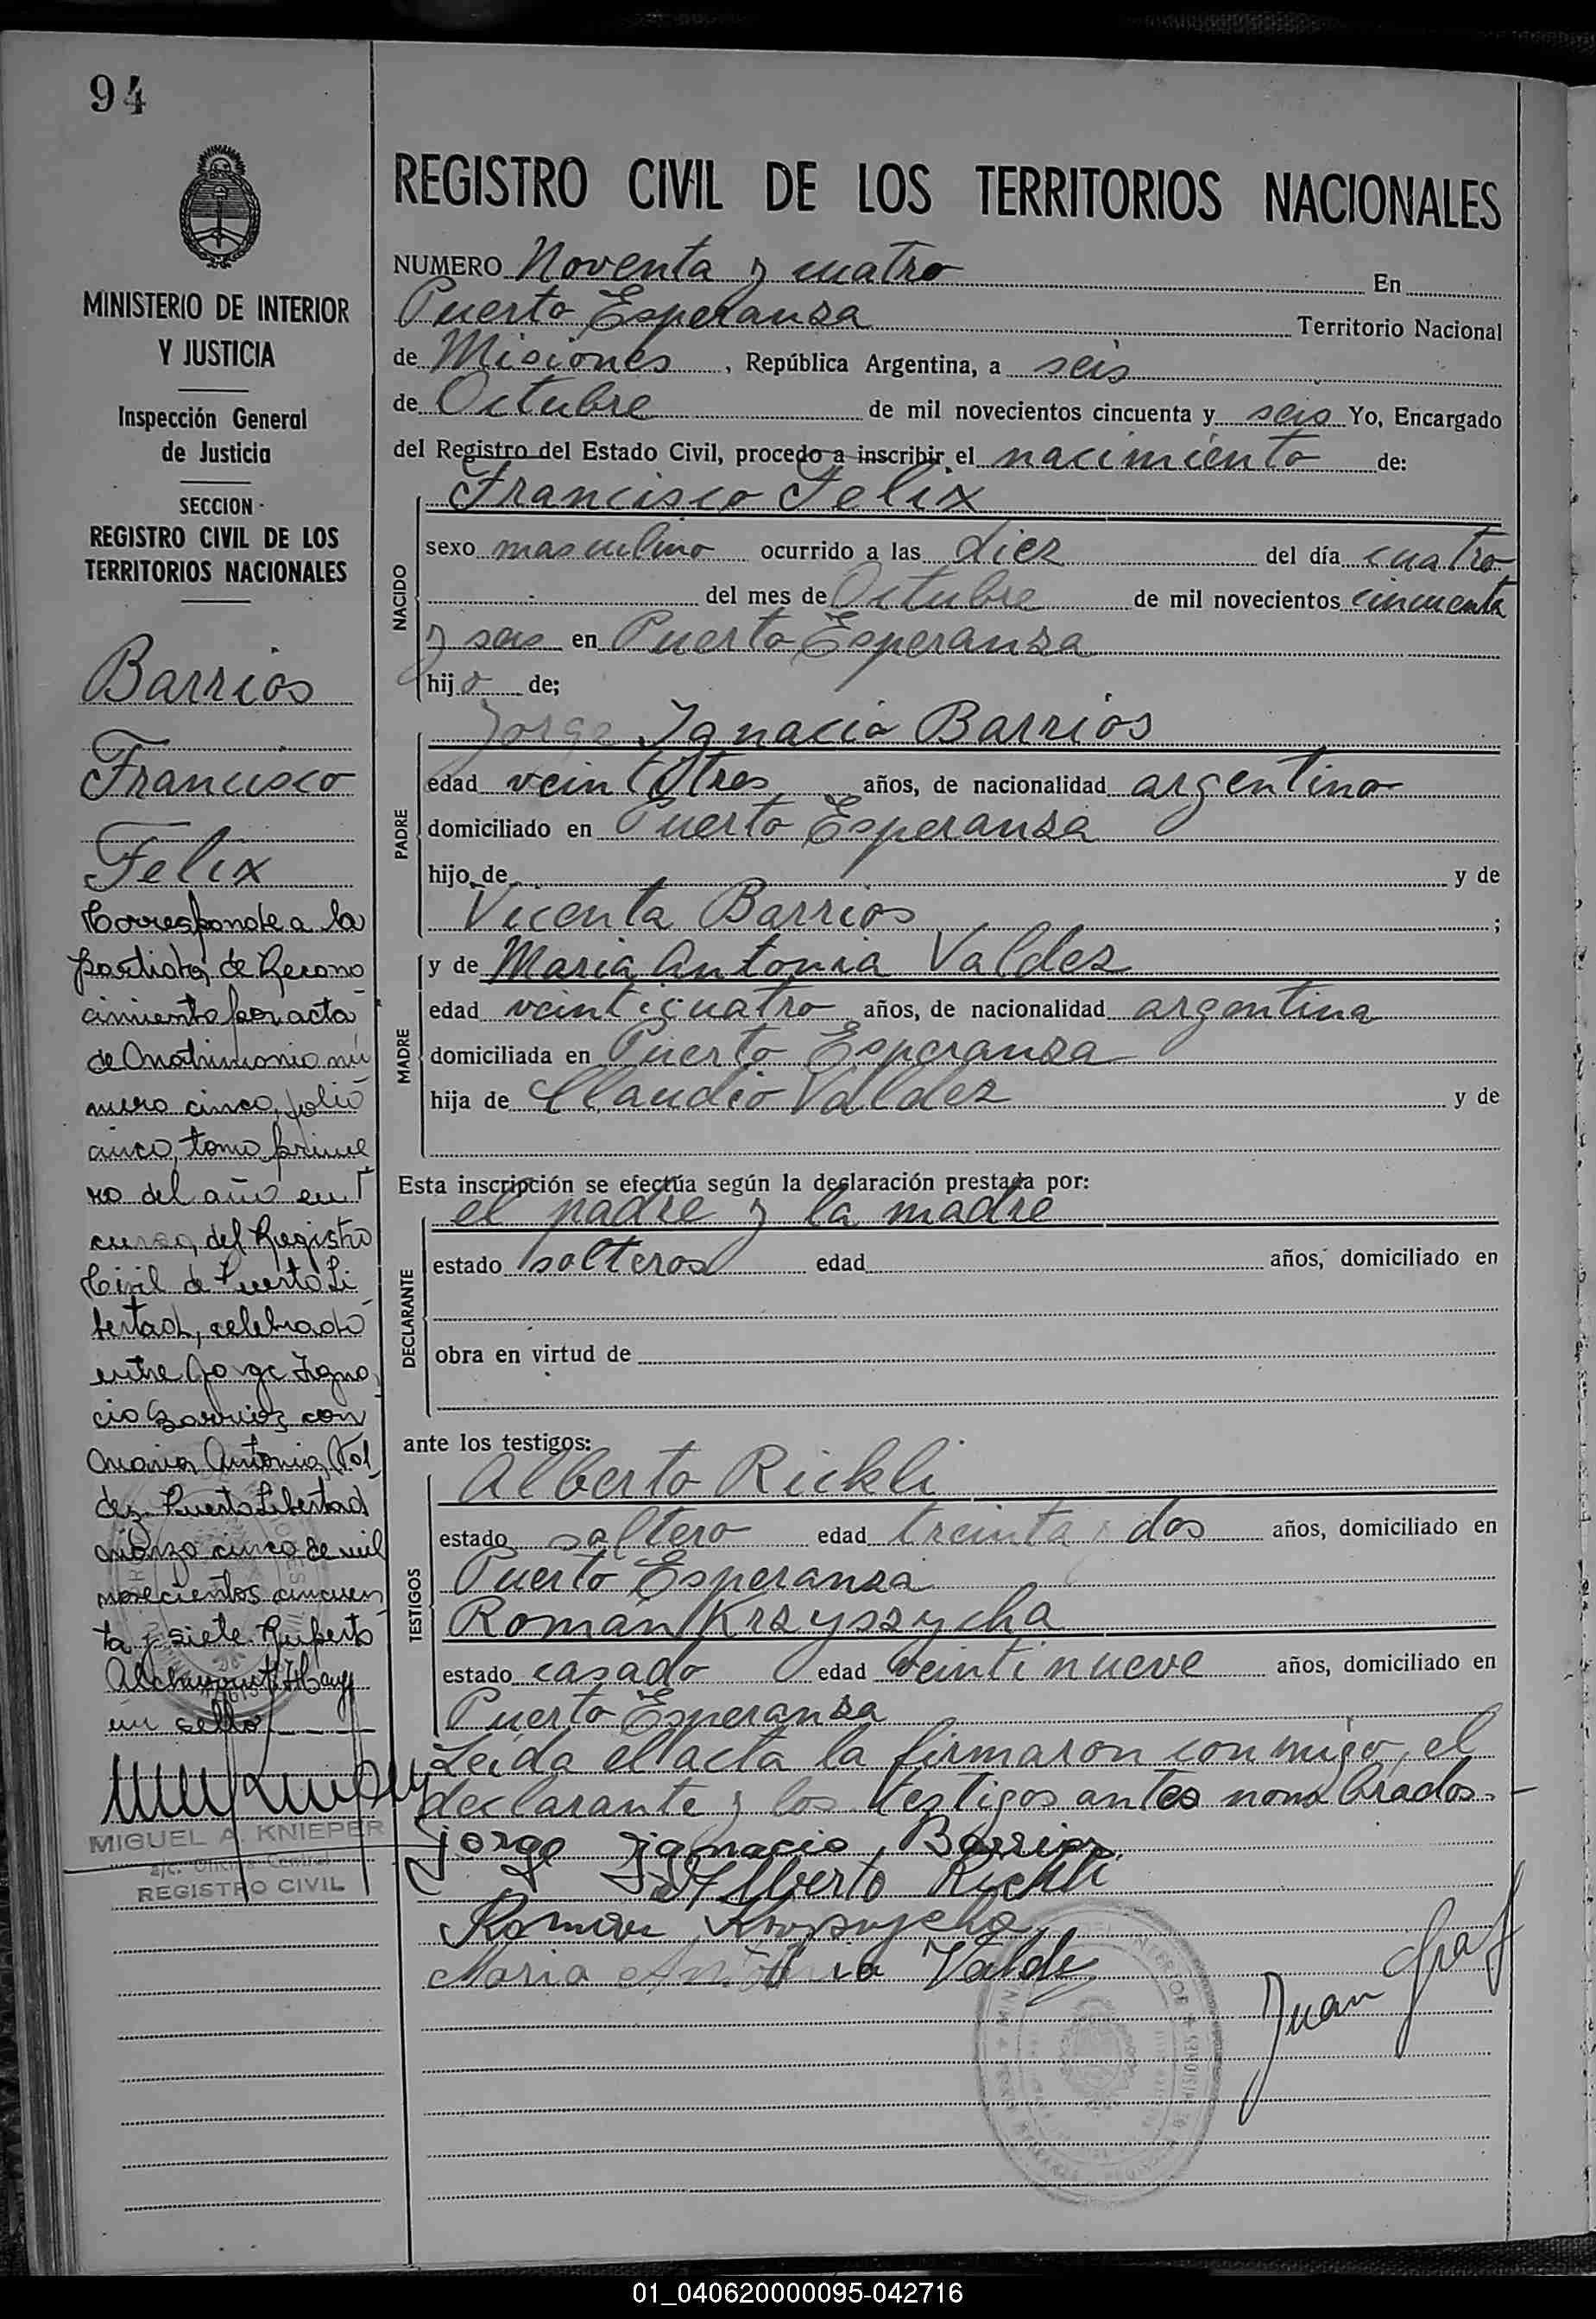 94
MINISTERIO DE INTERIOR
Y JUSTICIA
Inspección General
de Justicia
SECCION
REGISTRO CIVIL DE LOS
TERRITORIOS NACIONALES
Barrios
Francisco
Felix
Corresponde a la
partida de Recono
cimiento por acta
de Matrimonio nú
mero cinco, folio
cinco, tomo prime
ro del año en
curso, del Registro
Civil de Puerto Li
bertad, celebrado
entre Jorge Igna
cio Barrios con
Maria Antonia Val
dez. Puerto Libertad
marzo cinco de mil
novecientos cincuen
ta y siete. Ruperto
Hay
un sello
MIGUEL A. KNIEPER
a/c. Oficina Central
REGISTRO CIVIL
REGISTRO CIVIL DE LOS TERRITORIOS NACIONALES
NUMERO Noventa y cuatro En
Puerto Esperanza Territorio Nacional
de Misiones, República Argentina, a seis
de Octubre de mil novecientos cincuenta y seis Yo, Encargado
del Registro del Estado Civil, procedo a inscribir el nacimiento de:
NACIDO
Francisco Felix
sexo masculino ocurrido a las diez del día cuatro
del mes de Octubre de mil novecientos cincuenta
y seis en Puerto Esperanza
hijo de;
PADRE
Jorge Ignacio Barrios
edad veintitres años, de nacionalidad argentino
domiciliado en Puerto Esperanza
hijo de y de
Vicenta Barrios ;
MADRE
y de Maria Antonia Valdez
edad veinticuatro años, de nacionalidad argentina
domiciliada en Puerto Esperanza
hija de Claudio Valdez y de
Esta inscripción se efectúa según la declaración prestada por:
DECLARANTE
el padre y la madre
estado solteros edad años, domiciliado en
obra en virtud de
ante los testigos:
TESTIGOS
Alberto Rickli
estado soltero edad treinta y dos años, domiciliado en
Puerto Esperanza
Román Krzyszycha
estado casado edad veintinueve años, domiciliado en
Puerto Esperanza
Leida el acta la firmaron conmigo, el
declarante y los testigos antes nombrados.
Jorge Ignacio Barrios
Alberto Rickli
Roman Krzyszycha
Maria Antonia Valdez
Juan Graf
01_040620000095-042716